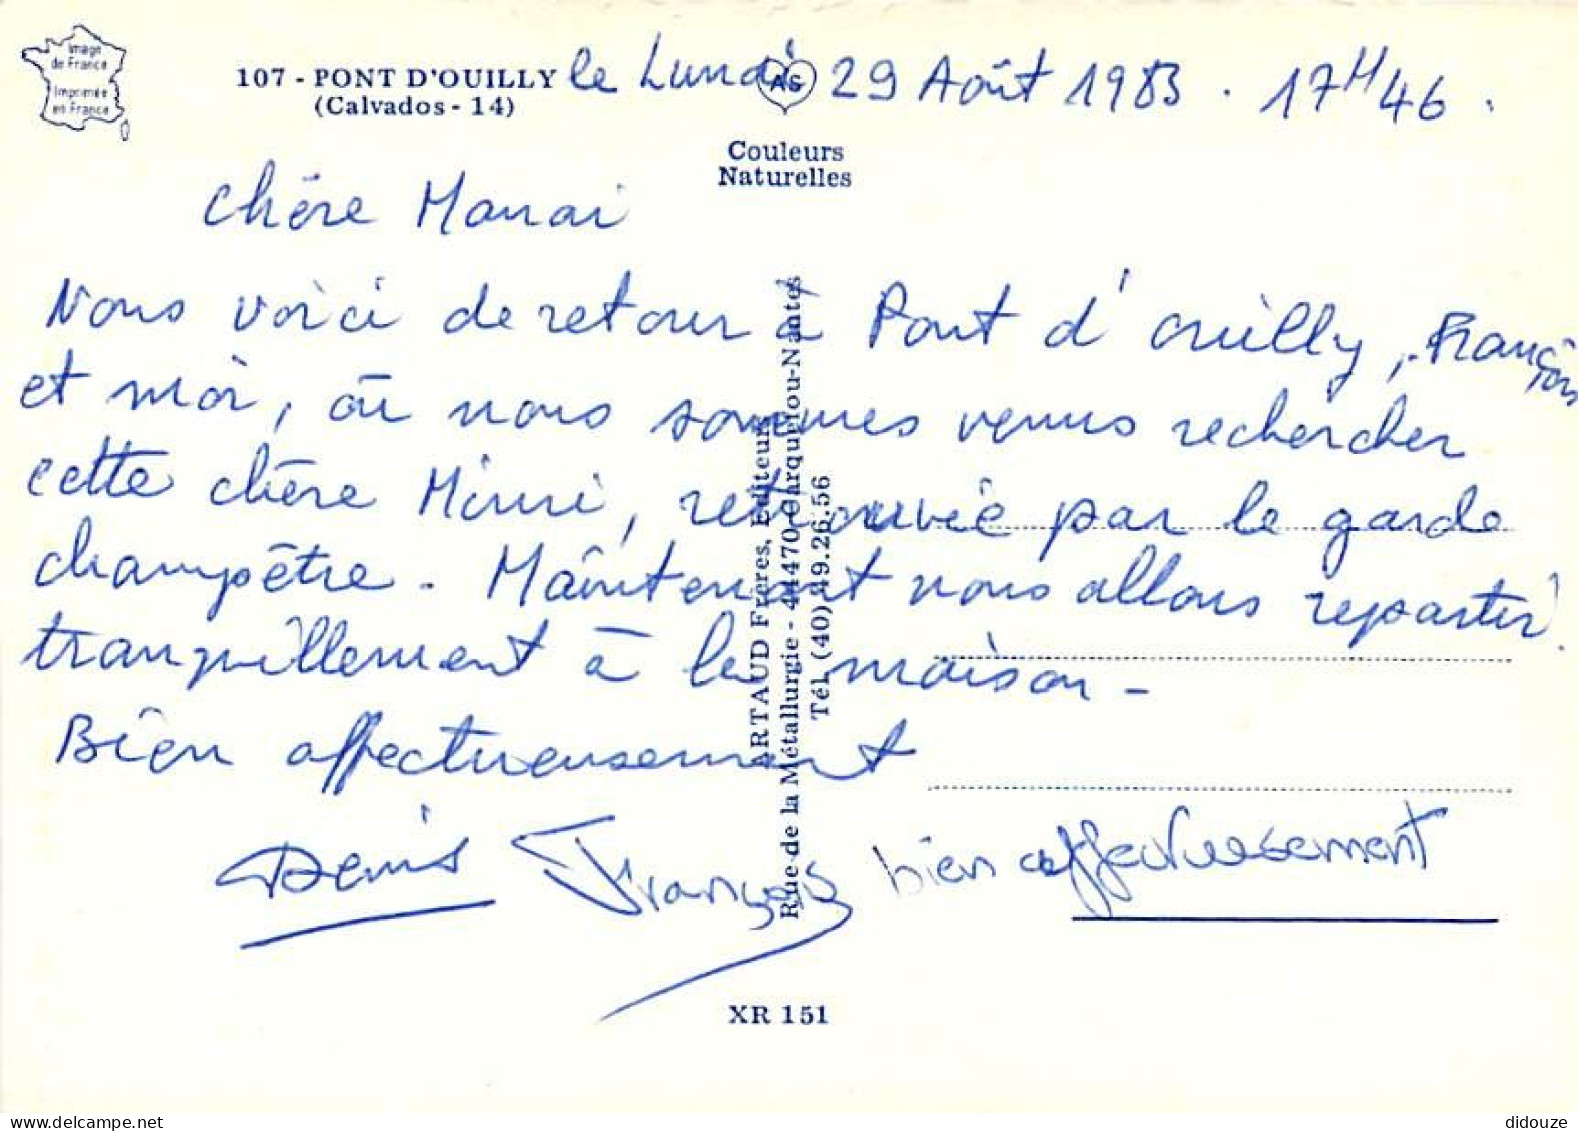 Image
de France
Imprimée
en France
107 - PONT D'OUILLY
(Calvados - 14)
le Lundi 29 Août 1983 . 17H46 .
AS
Couleurs
Naturelles
Chère Manai
Nous voici de retour à Pont d'ouilly, François
et moi, où nous sommes venus rechercher
cette chère Mimi, retrouvée par le garde
champêtre. Maintenant nous allons repartir
tranquillement à la maison -
Bien affectueusement
Denis François bien affectueusement
ARTAUD Frères, Editeurs
Rue de la Métallurgie - 44470-Carquefou-Nantes
Tél. (40) 49.26.56
XR 151
didouze
delcampe.net